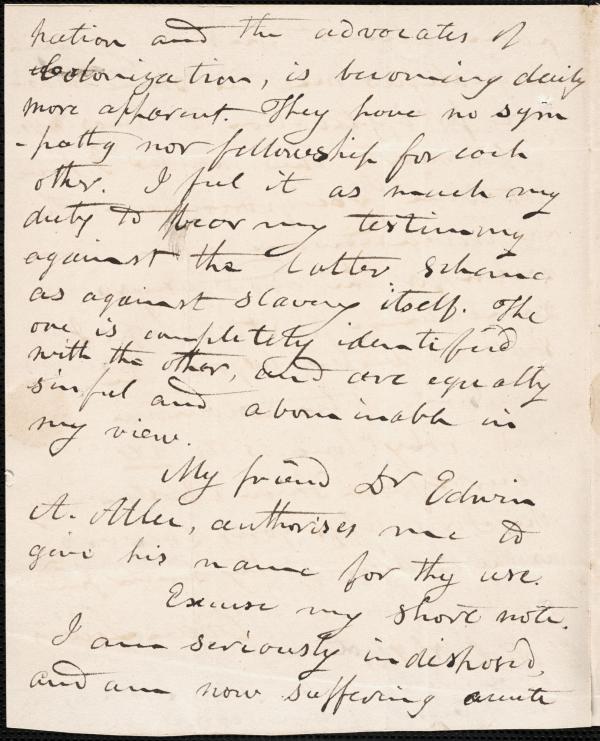 nation and the advocates of
Colonization, is becoming daily
more apparent. They have no sym
-pathy nor fellowship for each
other. I feel it as much my
duty to bear my testimony
against the latter scheme
as against slavery itself. The
one is completely identified
with the other, and are equally
sinful and abominable in
my view.
My friend Dr Edwin
A. Atlee, authorises me to
give his name for thy use.
Excuse my short note.
I am seriously indisposed,
and am now suffering acute